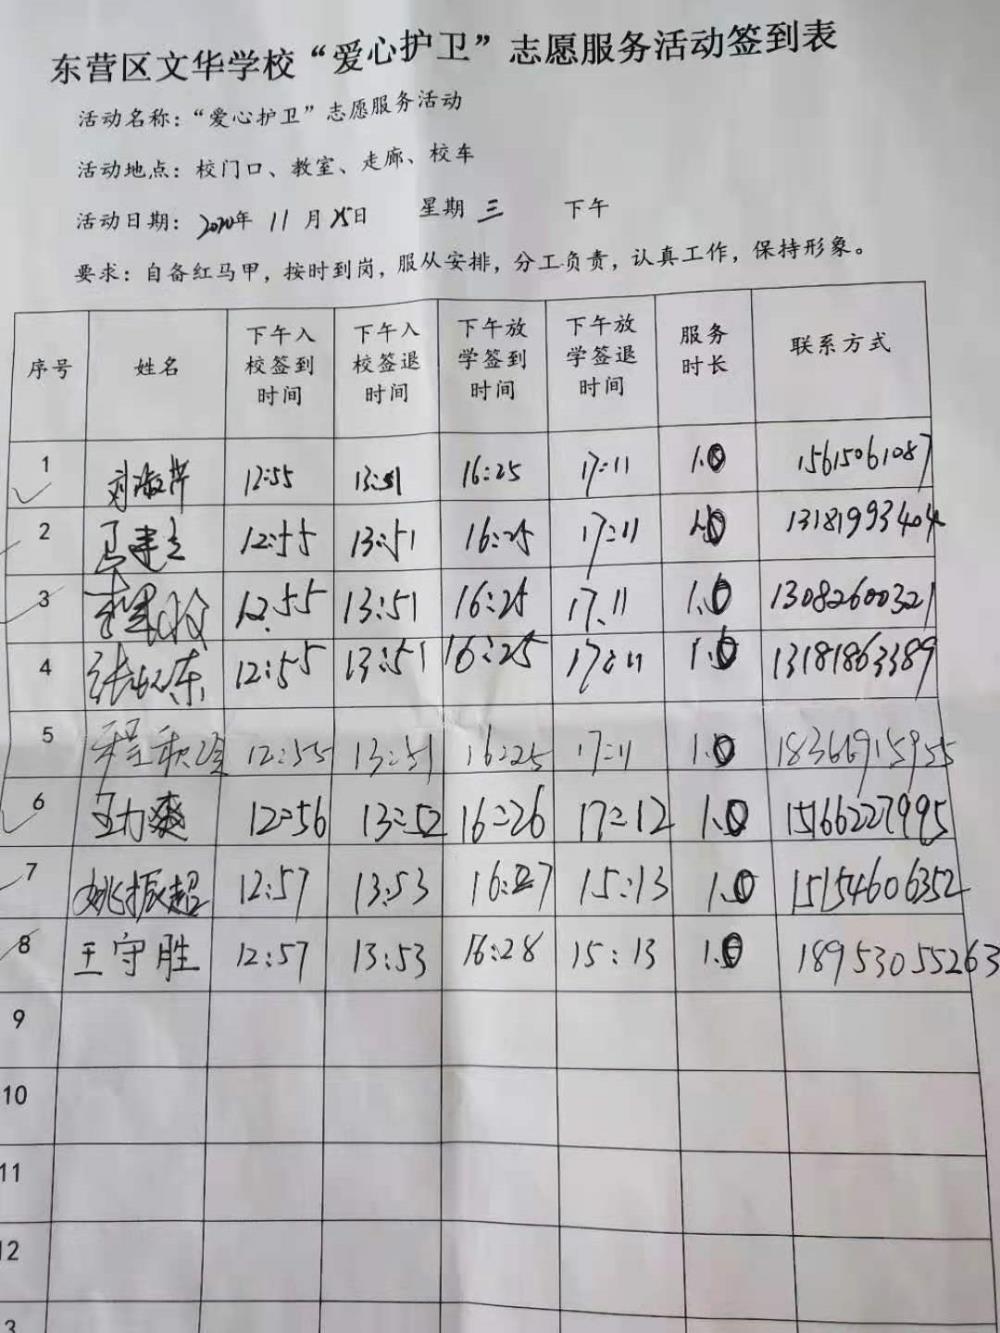 东营区文华学校“爱心护卫”志愿服务活动签到表
活动名称：“爱心护卫”志愿服务活动
活动地点：校门口、教室、走廊、校车
活动日期：2020年 11月25日 星期三 下午
要求：自备红马甲，按时到岗，服从安排，分工负责，认真工作，保持形象。
序号 姓名 下午入校签到时间 下午入校签退时间 下午放学签到时间 下午放学签退时间 服务时长 联系方式
1 刘淑芹 12:55 13:51 16:25 17:11 1.0 15615061087
2 马建立 12:55 13:51 16:25 17:11 1.0 13181993404
3 12:55 13:51 16:25 17:11 1.0 13082600321
4 12:55 13:51 16:25 17:11 1.0 13181863389
5 12:55 13:51 16:25 17:11 1.0 18366915955
6 王力爽 12:56 13:52 16:26 17:12 1.0 15166227995
7 姚振超 12:57 13:53 16:27 15:13 1.0 15154606352
8 王守胜 12:57 13:53 16:28 15:13 1.0 18953055263
9
10
11
12
3